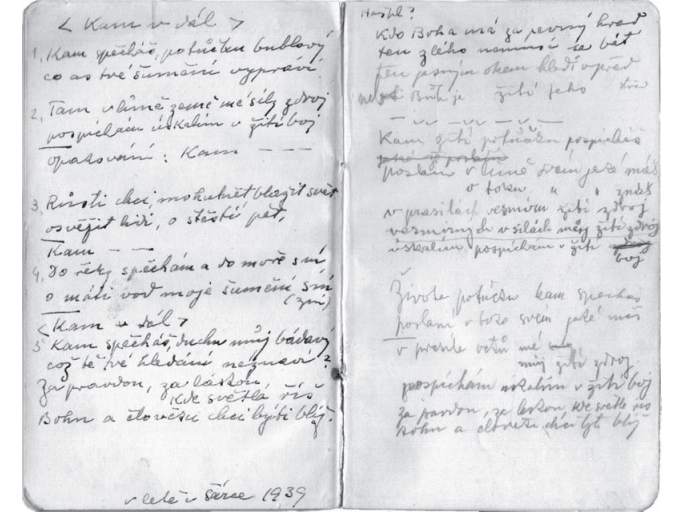 < Kam v dál >
1. Kam spěcháš, potůčku bublavý
co as tvé šumění vypráví
2. Tam v lůně země mé síly zdroj
pospíchám úskalím v žití boj
opakování: Kam — — —
3. Růsti chci, mohutnět, blažit svět
osvěžit kvítí, o štěstí pět,
Kam — —
4. Do řeky spěchám a do moře
o máti vod moje šumění
(zní)
< Kam v dál >
5 Kam spěcháš, duchu můj bádavý
což tě tvé hledání neznaví?
Za pravdou, za láskou,
kde světla říš
Bohu a člověku chci býti blíž.
v létě v Šárce 1939
Kdo Boha má za pevný hrad
ten zlého nemusí se bát
ten jasným okem hledí vpřed
Bůh je žití jeho
Kam žití potůčku pospícháš
poslání v lůně svém jaké máš
o toku " " znáš
v prasilách vesmíru žití zdroj
vesmírných v silách můj žití zdroj
úskalím pospíchám v žití
boj
Živote potůčku kam spěcháš
poslání v toku svém jaké máš
v
můj žití zdroj
pospíchám úskalím v žití boj
za pravdou, za láskou, kde světla říš
Bohu a člověku chci být blíž